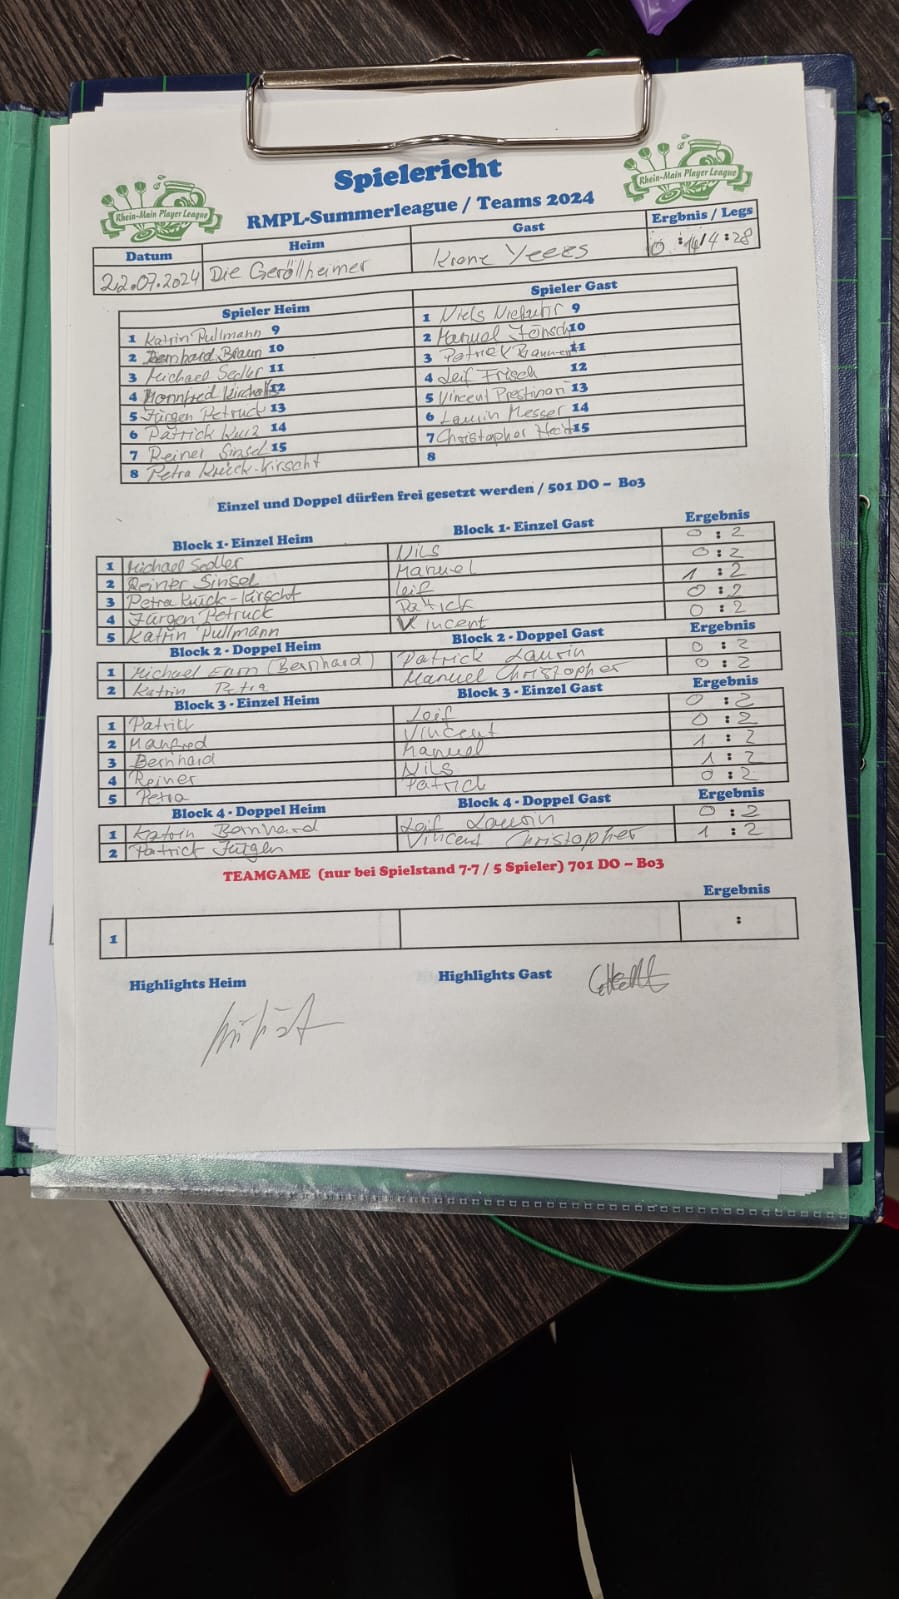 Spielericht
Rhein-Main Player League
Rhein-Main Player League
RMPL-Summerleague / Teams 2024
Datum Heim Gast Ergbnis / Legs
22.07.2024 Die Geröllheimer Krone Yeees 0 : 14/4 : 28
Spieler Heim Spieler Gast
1 Katrin Pullmann 9 1 Niels 9
2 Bernhard Braun 10 2 Manuel 10
3 Michael Sedler 11 3 Patrick 11
4 Mannfred 12 4 Leif Frisch 12
5 Jürgen Petruck 13 5 Vincent Prestinari 13
6 Patrick Kurz 14 6 Laurin Messer 14
7 Reiner Sinsel 15 7 Christopher 15
8 Petra Kück-Kirscht 8
Einzel und Doppel dürfen frei gesetzt werden / 501 DO – Bo3
Block 1- Einzel Heim Block 1- Einzel Gast Ergebnis
1 Michael Sedler Nils 0 : 2
2 Reiner Sinsel Manuel 0 : 2
3 Petra Kück-Kirscht Leif 1 : 2
4 Jürgen Petruck Patrick 0 : 2
5 Katrin Pullmann Vincent 0 : 2
Block 2 - Doppel Heim Block 2 - Doppel Gast Ergebnis
1 Michael (Bernhard) Patrick Laurin 0 : 2
2 Katrin Petra Manuel Christopher 0 : 2
Block 3 - Einzel Heim Block 3 - Einzel Gast Ergebnis
1 Patrick Leif 0 : 2
2 Manfred Vincent 0 : 2
3 Bernhard Manuel 1 : 2
4 Reiner Nils 1 : 2
5 Petra Patrick 0 : 2
Block 4 - Doppel Heim Block 4 - Doppel Gast Ergebnis
1 Katrin Bernhard Leif Laurin 0 : 2
2 Patrick Jürgen Vincent Christopher 1 : 2
TEAMGAME (nur bei Spielstand 7-7 / 5 Spieler) 701 DO – Bo3
Ergebnis
1 :
Highlights Heim Highlights Gast